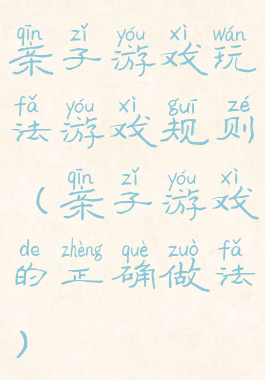 qīn zǐ yóu xì wán
亲子游戏玩
fǎ yóu xì guī zé
法游戏规则
qīn zǐ yóu xì
(亲子游戏
de zhèng què zuò fǎ
的正确做法
)